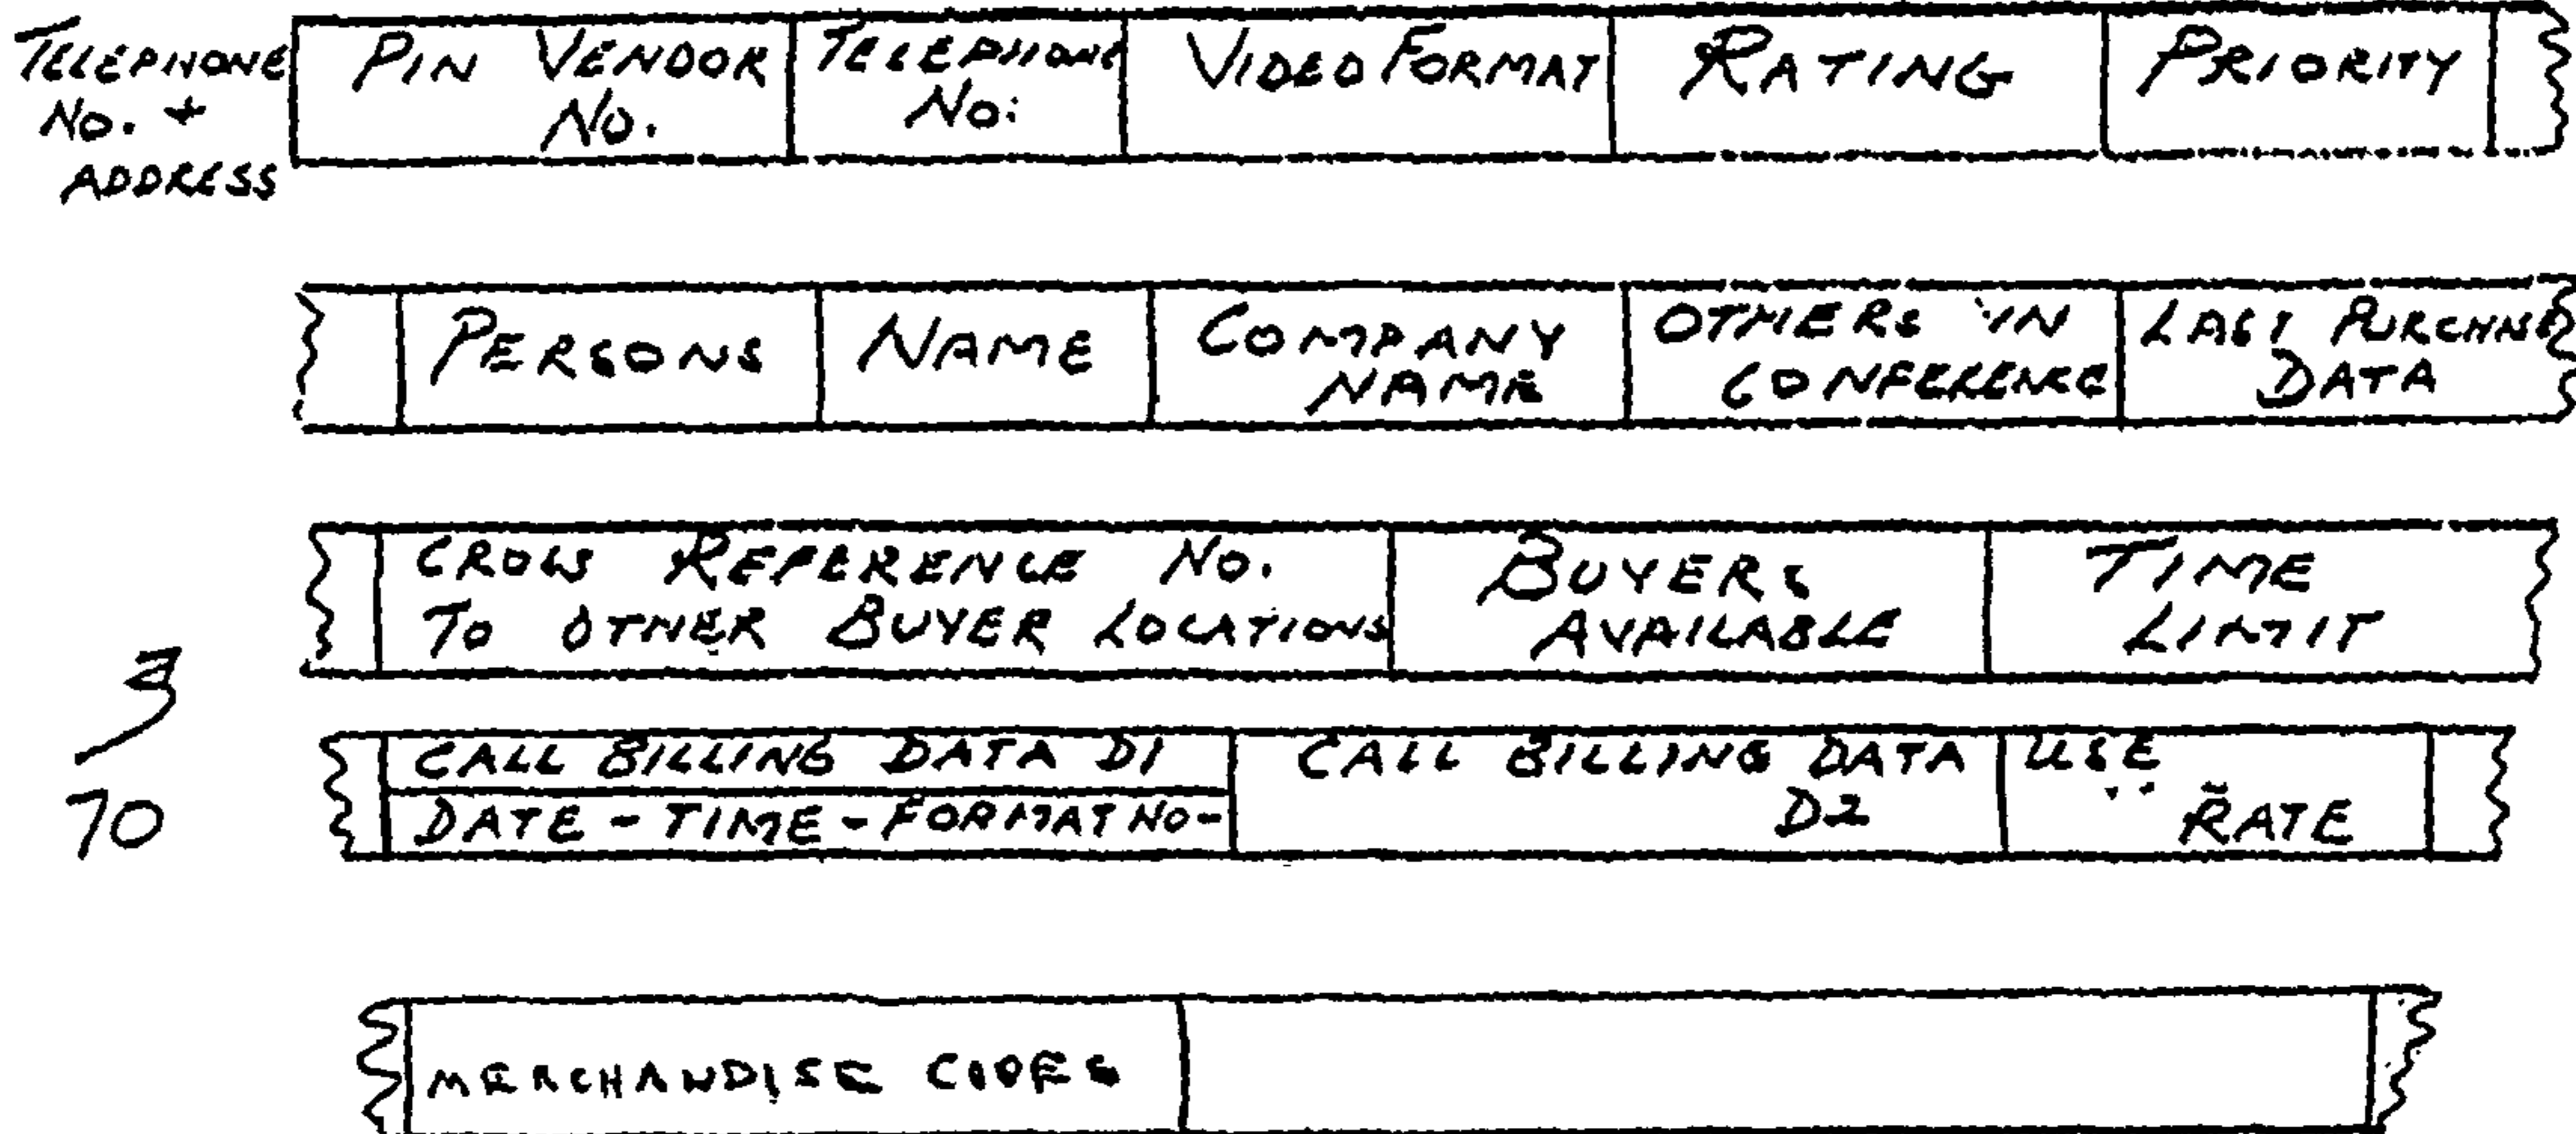 TELEPHONE
No. +
ADDRESS
PIN VENDOR
No.
TELEPHONE
No:
VIDEO FORMAT
RATING
PRIORITY
PERSONS
NAME
COMPANY
NAME
OTHERS IN
CONFERENCE
LAST PURCHASE
DATA
CROSS REFERENCE No.
TO OTHER BUYER LOCATIONS
BUYERS
AVAILABLE
TIME
LIMIT
3
70
CALL BILLING DATA D1
DATE - TIME - FORMAT NO -
CALL BILLING DATA
D2
USE
RATE
MERCHANDISE CODES